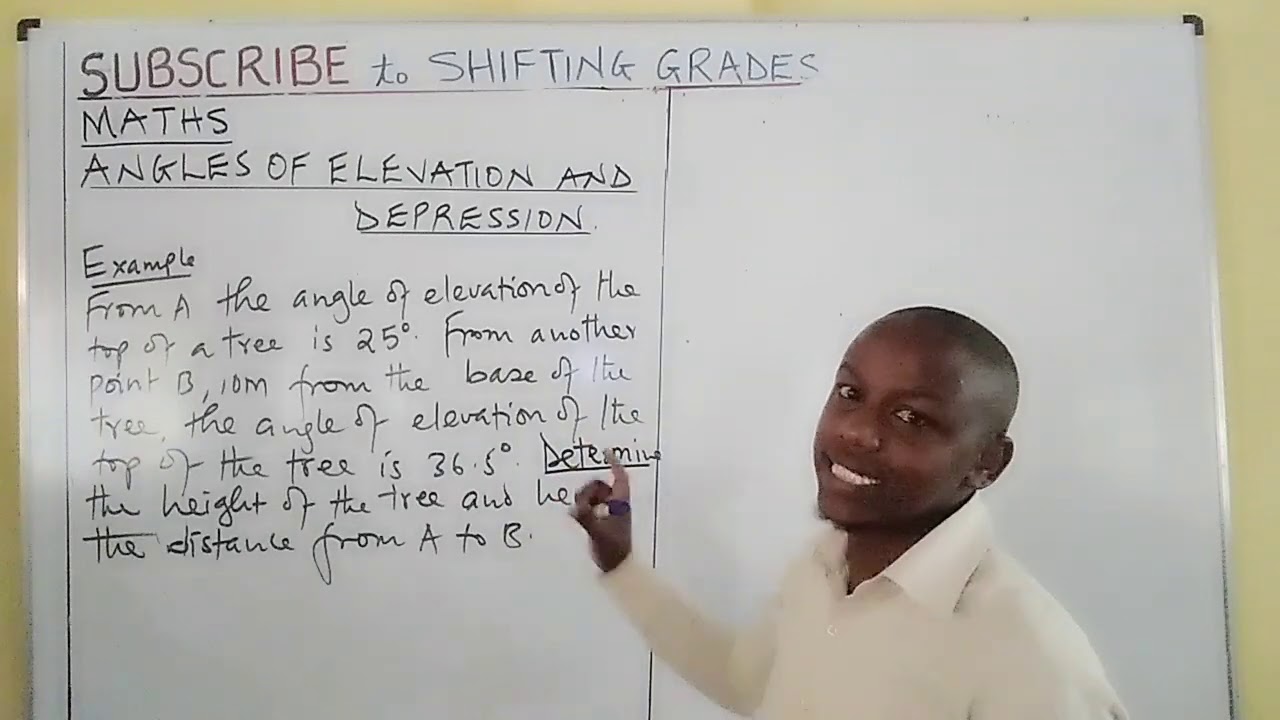 SUBSCRIBE to SHIFTING GRADES
MATHS
ANGLES OF ELEVATION AND
DEPRESSION.
Example
From A the angle of elevation of the
top of a tree is 25°. From another
point B, 10M from the base of the
tree, the angle of elevation of the
top of the tree is 36.5°. Determine
the height of the tree and
the distance from A to B.